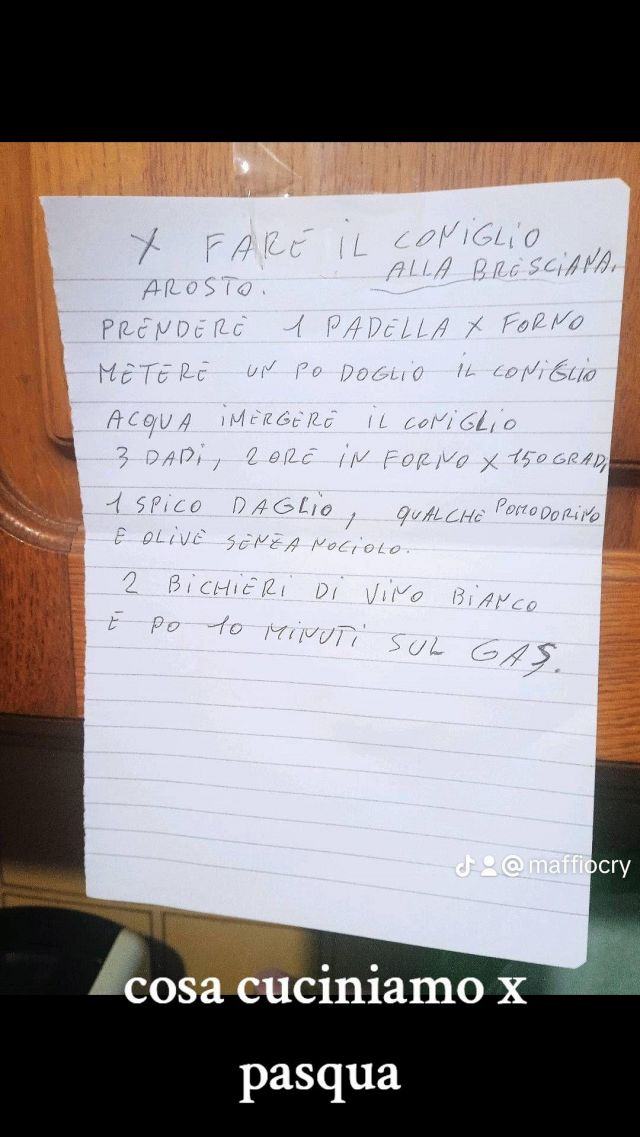 X FARE IL CONIGLIO
ALLA BRESCIANA.
AROSTO.
PRENDERE 1 PADELLA X FORNO
METERE UN PO DOGLIO IL CONIGLIO
ACQUA IMERGERE IL CONIGLIO
3 DADI, 2 ORE IN FORNO X 150 GRADI
1 SPICO DAGLIO, QUALCHE POMODORINO
E OLIVE SENZA NOCIOLO.
2 BICHIERI DI VINO BIANCO
E PO 10 MINUTI SUL GAS.
@maffiocry
cosa cuciniamo x
pasqua